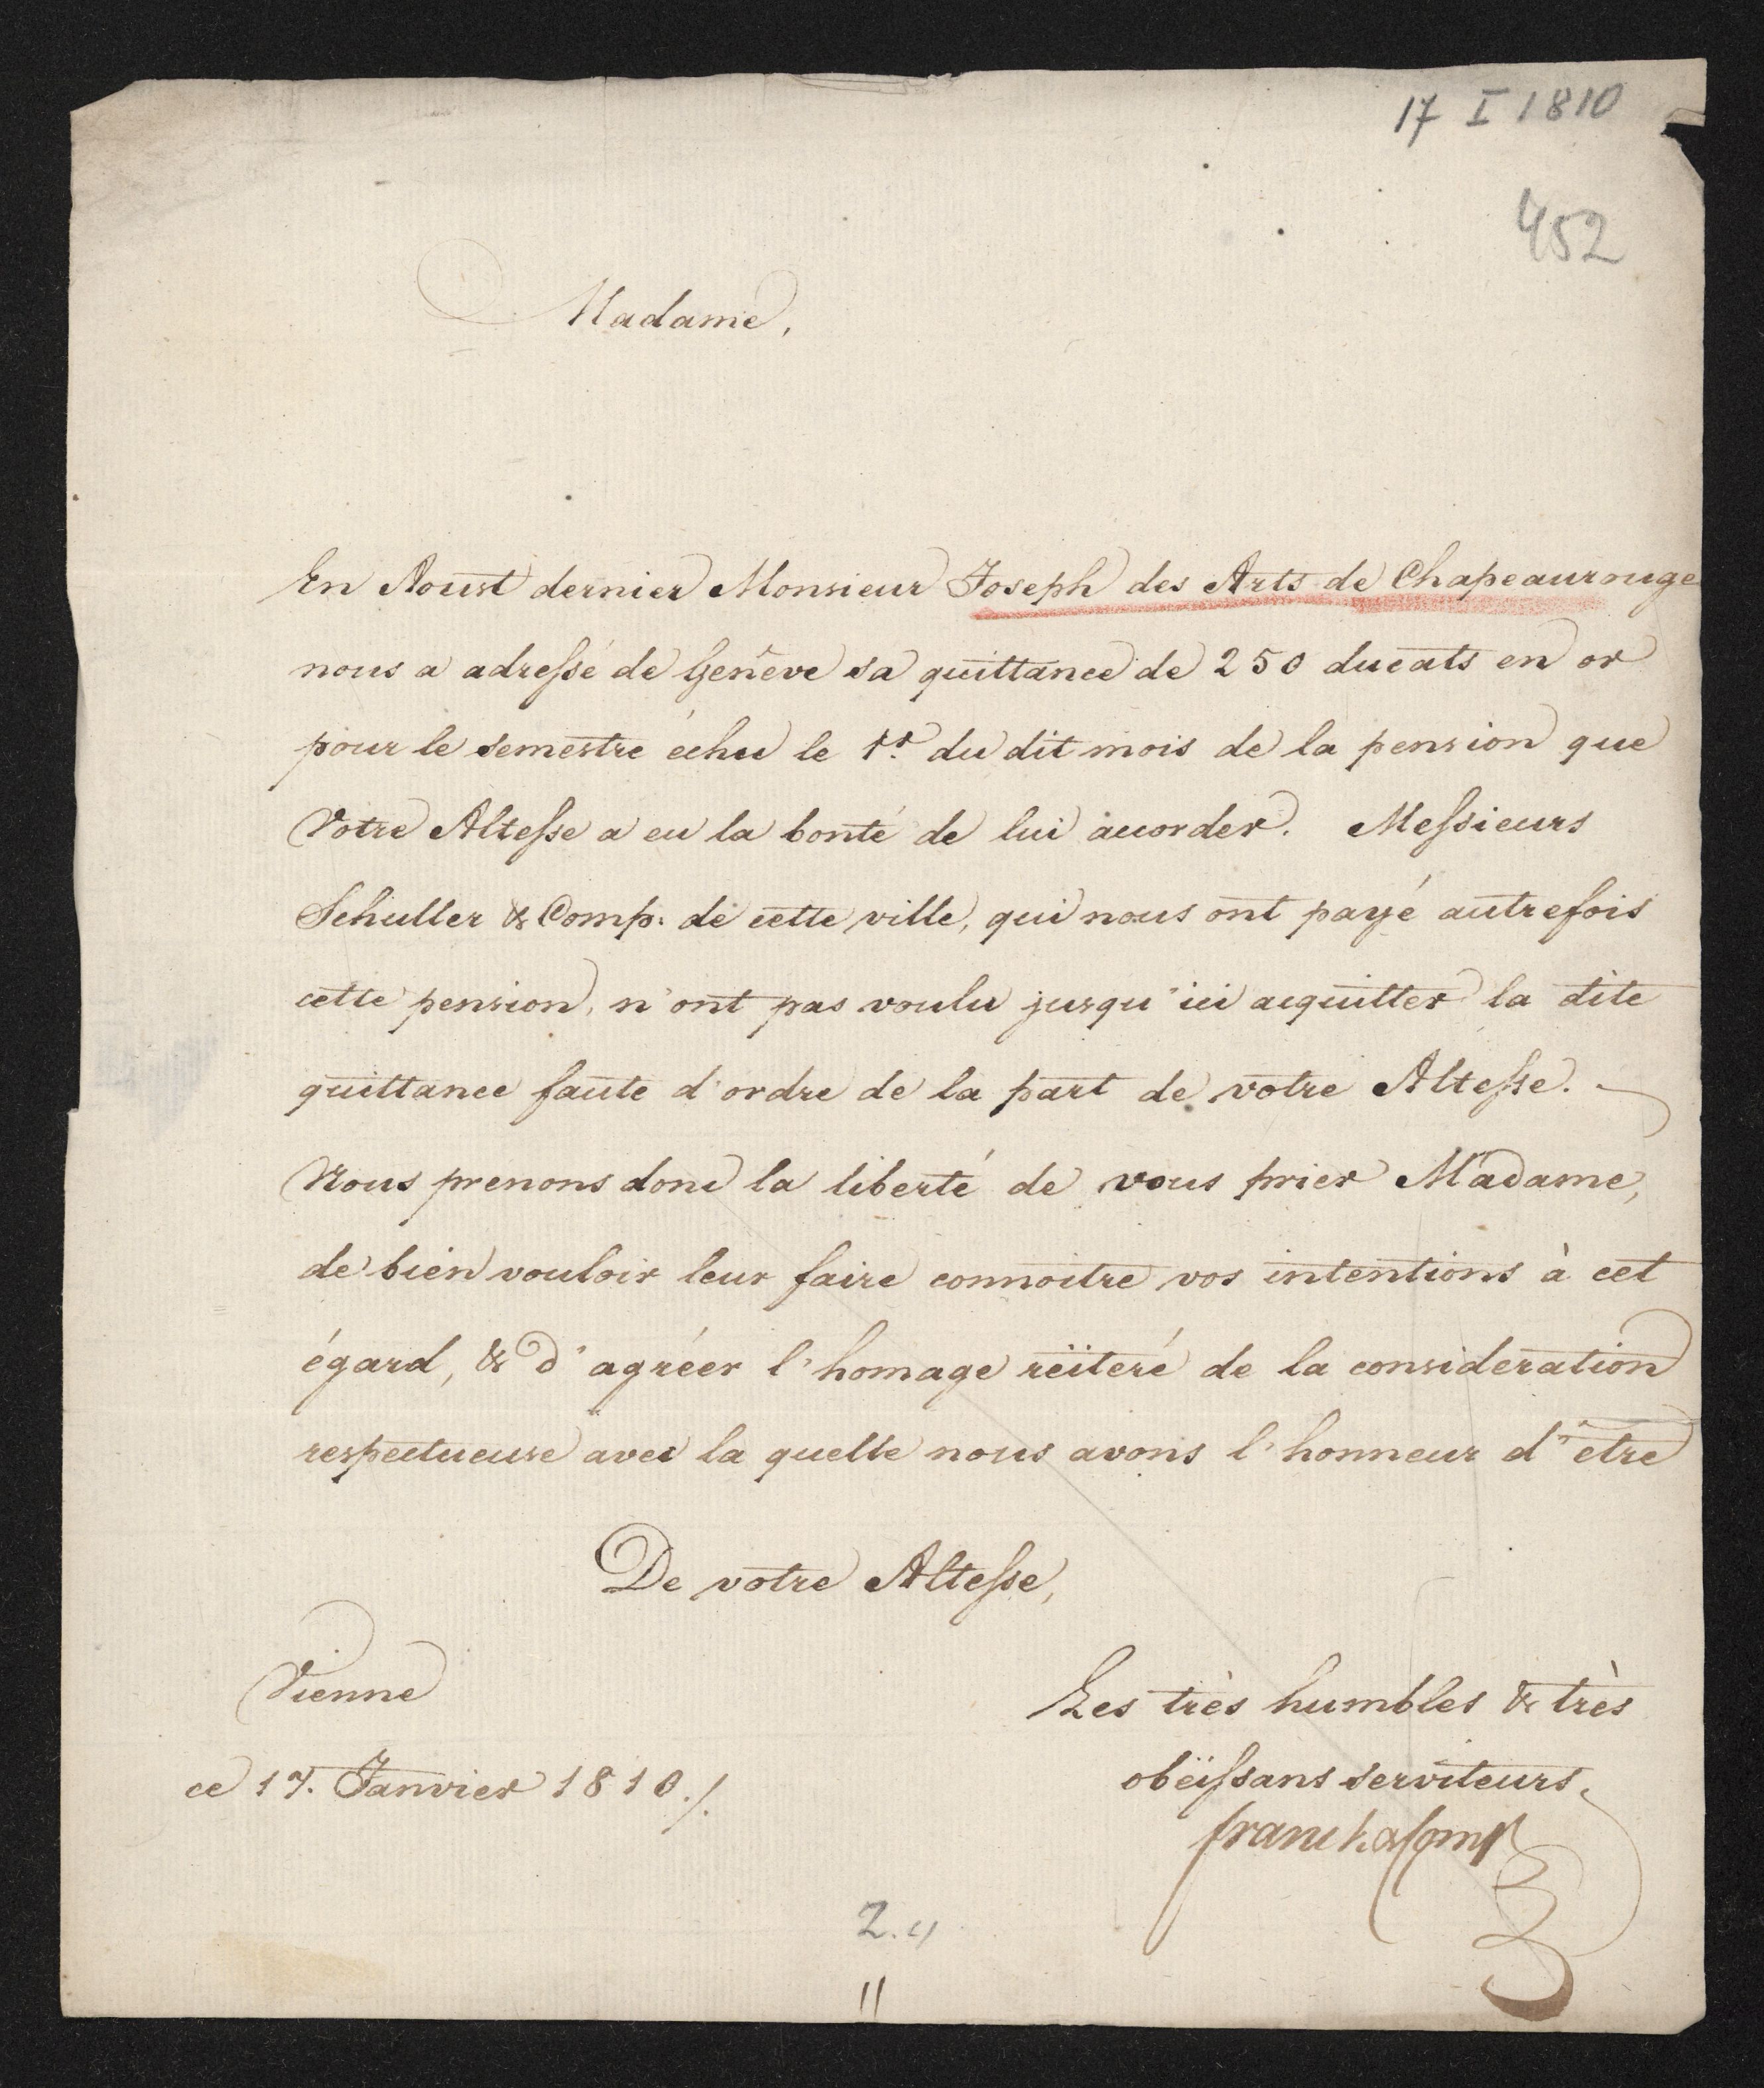 17 I 1810
452
Madame,
En Aoust dernier Monsieur Joseph des Arts de Chapeaurouge
nous a adressé de Genêve sa quittance de 250 ducats en or
pour le semestre échu le 1r. du dit mois de la pension que
Votre Altesse a eu la bonté de lui accorder. Messieurs
Schuller & Comp: de cette ville, qui nous ont payé autrefois
cette pension, n'ont pas voulu jusqu'ici acquitter la dite
quittance faute d'ordre de la part de votre Altesse.
Nous prenons donc la liberté de vous prier Madame,
de bien vouloir leur faire connoitre vos intentions à cet
égard, & d'agréer l'homage réiteré de la consideration
respectueuse avec la quelle nous avons l'honneur d'etre
De votre Altesse,
Vienne
Les très humbles & très
ce 17. Janvier 1810./.
obéissans serviteurs.
franck & Comp
2.
11